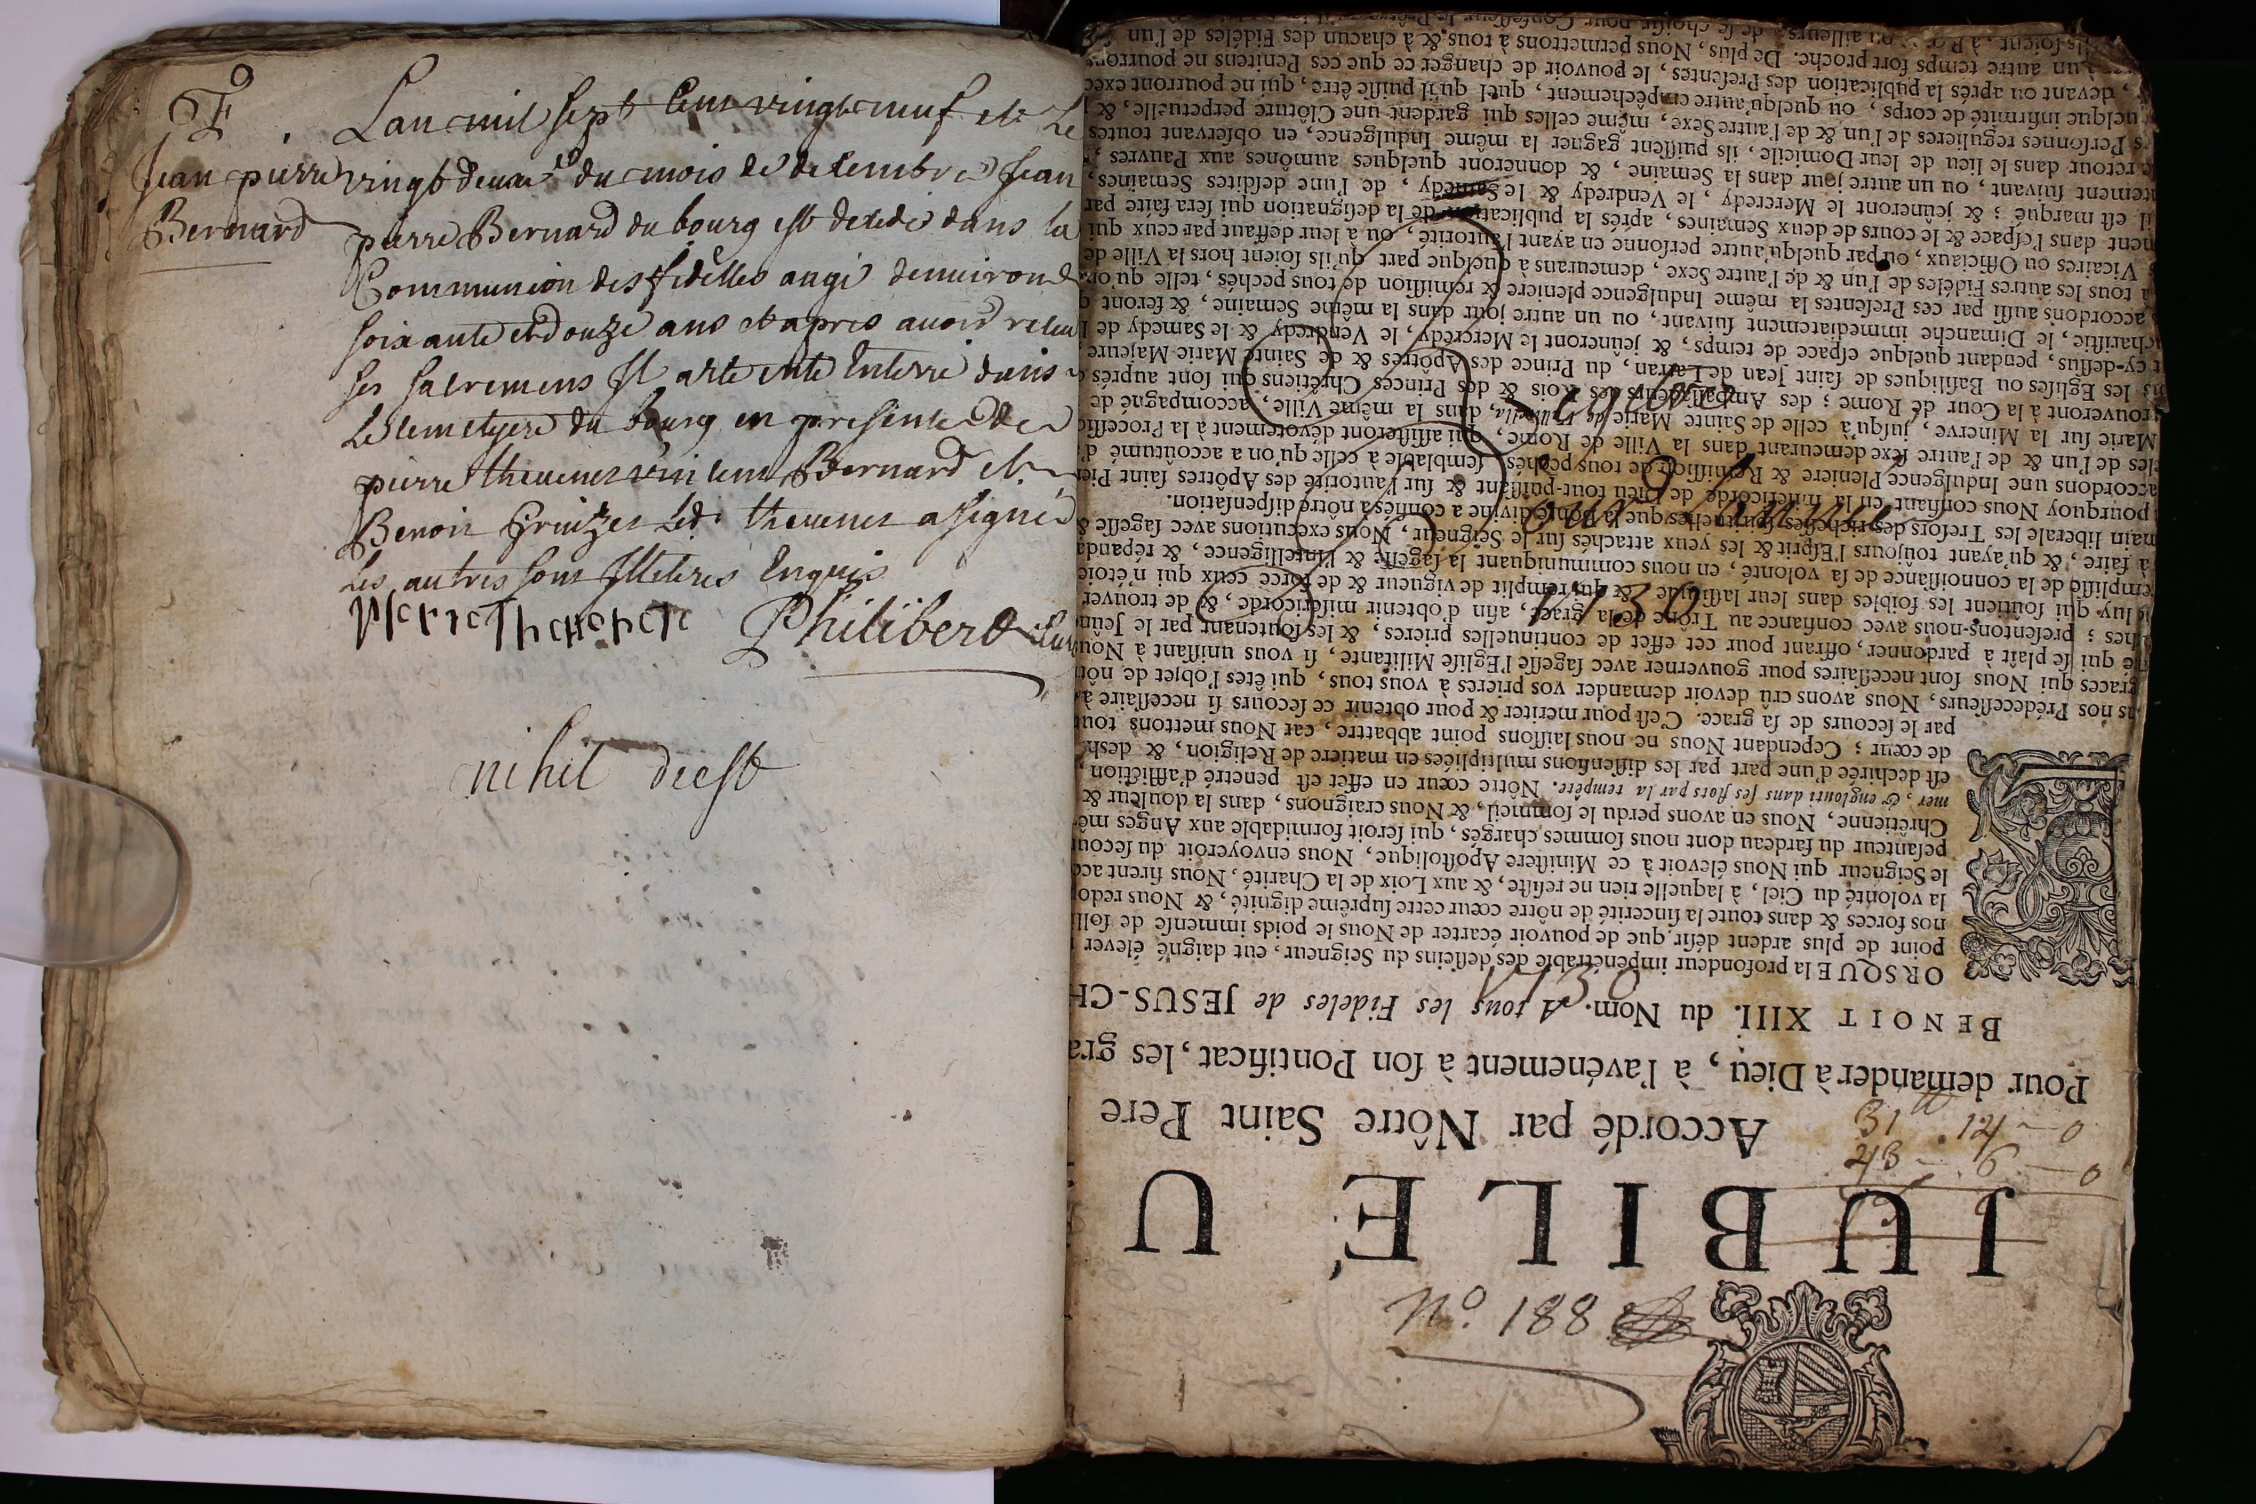 F
Jean pierre
Bernard
L'an mil sept Cent vingt neuf et le
vingt deuxe du mois de decembre Jean
pierre Bernard du bourg est decedé dans la
Communion des fidelles augé denuiron
soixante et douze ans et apres auoir receu
ses sacremens Il at eté Enterré dans
Le cemetyere du bourg en presence de
pierre theuenet vincent Bernard et
Benoit Led. theuenet a signé
Les autres sont Illeteres Enquis
Pierre Thevenet Philibert Curé
nihil deest
JUBILÉ U
Accordé par Nôtre Saint Pere
Pour demander à Dieu, à l'avénement à son Pontificat, les gra
BENOIT XIII. du Nom. A tous les Fideles de JESUS-CH
ORSQUE la profondeur impénétrable des desseins du Seigneur, eut daigné élever
point de plus ardent désir que de pouvoir écarter de Nous le poids immense de
nos forces & dans toute la sincerité de nôtre cœur cette suprême dignité, & Nous redo
la volonté du Ciel, à laquelle rien ne resiste, & aux Loix de la Charité, Nous firent acc
le Seigneur qui Nous élevoit à ce Ministere Apostolique, Nous envoyeroit du secour
pesanteur du fardeau dont nous sommes chargés, qui seroit formidable aux Anges mê
Chrêtienne, Nous en avons perdu le sommeil, & Nous craignons, dans la douleur &
mer, & englouti dans ses flots par la tempête. Nôtre cœur en effet est penetré d'affliction,
est dechirée d'une part par les dissensions multipliées en matiere de Religion, & desh
de cœur ; Cependant Nous ne nous laissons point abbattre, car Nous mettons tout
par le secours de sa grace. C'est pour meriter & pour obtenir ce secours si necessaire à
nos Prédecesseurs, Nous avons crû devoir demander vos prieres à vous tous, qui êtes l'objet de nôt
graces qui Nous sont necessaires pour gouverner avec sagesse l'Eglise Militante, si vous unissant à Nou
qui se plaît à pardonner, offrant pour cet effet de continuelles prieres, & les soutenant par le Jeûn
; presentons-nous avec confiance au Trône de la grace, afin d'obtenir misericorde, & de trouver
luy qui soûtient les foibles dans leur lassitude & qui remplit de vigueur & de force ceux qui n'étoie
emplisse de la connoissance de sa volonté, en nous communiquant la sagesse & l'Intelligence, & répanda
à faire, & qu'ayant toûjours l'Esprit & les yeux attachés sur le Seigneur, Nous executions avec sagesse &
main liberale les Tresors des richesses spirituelles que la bonté divine a confiés à nôtre dispensation.
pourquoy Nous confiant en la misericorde de Dieu tout-puissant & sur l'autorité des Apôtres saint Pier
accordons une Indulgence Pleniere & Remission de tous pechés, semblable à celle qu'on a accoûtumé d'
les de l'un & de l'autre sexe demeurant dans la Ville de Rome, qui assisteront dévotement à la Processi
Marie sur la Minerve, jusqu'à celle de Sainte Marie dans la même Ville, accompagné de
trouveront à la Cour de Rome ; des Ambassadeurs des Rois & des Princes Chrêtiens qui sont auprés
les Eglises ou Basiliques de saint Jean de Latran, du Prince des Apôtres & de Sainte Marie Majeure
cy-dessus, pendant quelque espace de temps, & jeûneront le Mercredy, le Vendredy & le Samedy de
charistie, le Dimanche immediatement suivant, ou un autre jour dans la même Semaine, & feront
accordons aussi par ces Presentes la même Indulgence pleniere & remission de tous pechés, telle qu'on
à tous les autres Fidéles de l'un & de l'autre Sexe, demeurans à quelque part qu'ils soient hors la Ville de
Vicaires ou Officiaux, ou par quelqu'autre personne en ayant l'autorité, ou à leur deffaut par ceux qui
ment dans l'espace & le cours de deux Semaines, aprés la publication de la designation qui sera faite par
il est marqué ; & jeûneront le Mercredy, le Vendredy & le Samedy, de l'une desdites Semaines,
tement suivant, ou un autre jour dans la Semaine, & donneront quelques aumônes aux Pauvres
retour dans le lieu de leur Domicile, ils puissent gagner la même Indulgence, en observant toutes
Personnes regulieres de l'un & de l'autre Sexe, même celles qui gardent une Clôture perpetuelle, &
quelque infirmité de corps, ou quelqu'autre empêchement, quel qu'il puisse être, qui ne pourront exec
devant ou aprés la publication des Presentes, le pouvoir de changer ce que ces Penitens ne pourron
à un autre temps fort proche. De plus, Nous permettons à tous & à chacun des Fidéles de l'un
Registre
Pour Lannée
1730
1730
31tt . 14 - 0
48 - 6 - 0
No. 188